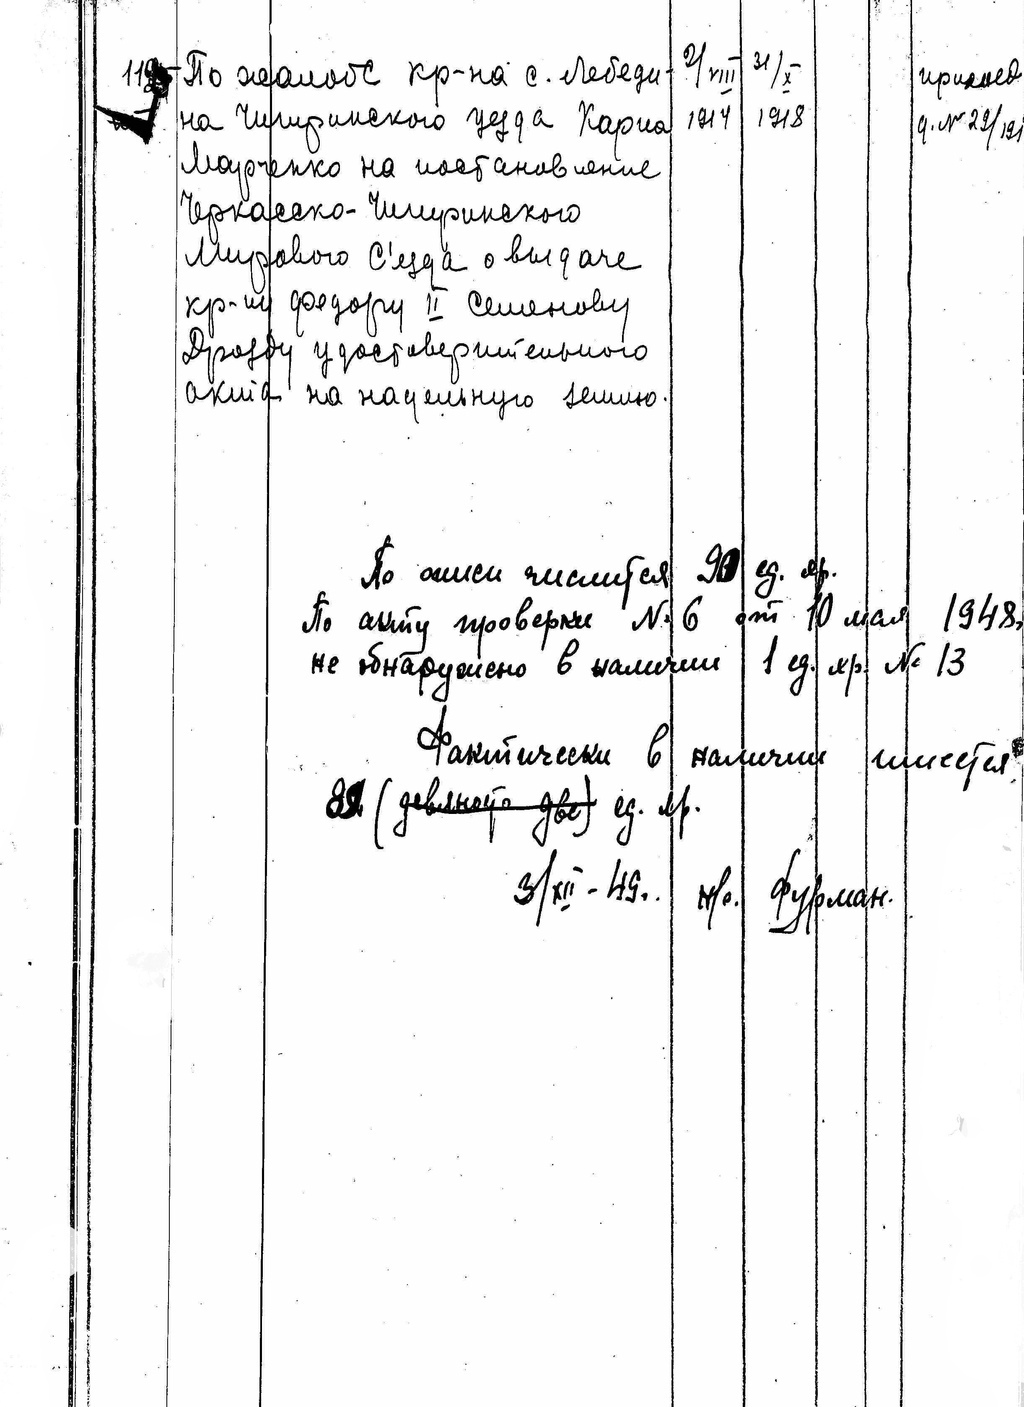 По жалобе кр-на с. Лебеди- 2/VIII 31/X
на Чигиринского уезда Карпа 1914 1918 д. № 29/191
Марченко на постановление
Черкасско-Чигиринского
Мирового С'езда о выдаче
кр-ну Федору II Семенову
Дрозду удостоверительного
акта на надельную землю.
По описи числится ед. хр.
По акту проверки № 6 от 10 мая 1948.
не обнаружено в наличии 1 ед. хр. № 13
Фактически в наличии имеется
(девяносто две) ед. хр.
3/XII - 49г. н/с. Фурман.